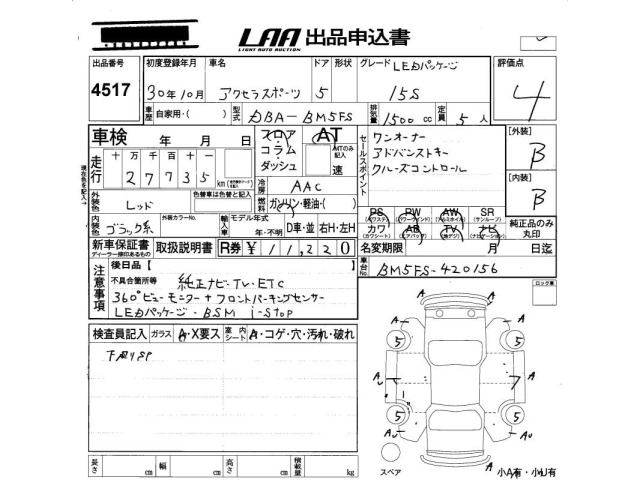 LAA 出品申込書
LIGHT AUTO AUCTION
出品番号 初度登録年月 車名 ドア 形状 グレード LEDパッケージ 評価点
4517 30年10月 アクセラスポーツ 5 15S 4
車歴 自家用・( ) 型式 DBA-BM5FS 排気量 1500 cc 定員 5 人
車検 年 月 日
フロア・コラム・ダッシュ AT ATのみ記入 速
セールスポイント
ワンオーナー
アドバンストキー
クルーズコントロール
[外装] B
[内装] B
走行 十 万 千 百 十
2 7 7 3 5 km
冷房 AAC
燃料 ガソリン・軽油・( )
外装色 レッド 色替車は色替と記入
PS PW AW SR
(パワステ) (パワーウインド) (アルミホイル) (サンルーフ)
カワ AB TV ナビ
(カワシート) (エアバッグ) (地デジ) (ナビゲーション)
純正品のみ丸印
内装色 ブラック系 外装カラーNo. 輸入車 モデル年式 年・不明 D車・並 右H・左H
新車保証書 取扱説明書 R券 ¥11,220
ディーラー捺印あるもの
名変期限 月 日迄
車台No. BM5FS-420156
注意事項
後日品[ ]
不具合箇所等 純正ナビ・TV・ETC
360°ビューモニター+フロントパーキングセンサー
LEDパッケージ・BSM i-stop
ロック車
検査員記入 ガラス A・X要ス 室内シート A・コゲ・穴・汚れ・破れ
下廻りSP
A A
5 5
A A
5 5
A AU
スペア A 小A有・小U有
長さ cm 幅 cm 高さ cm 積載量 kg